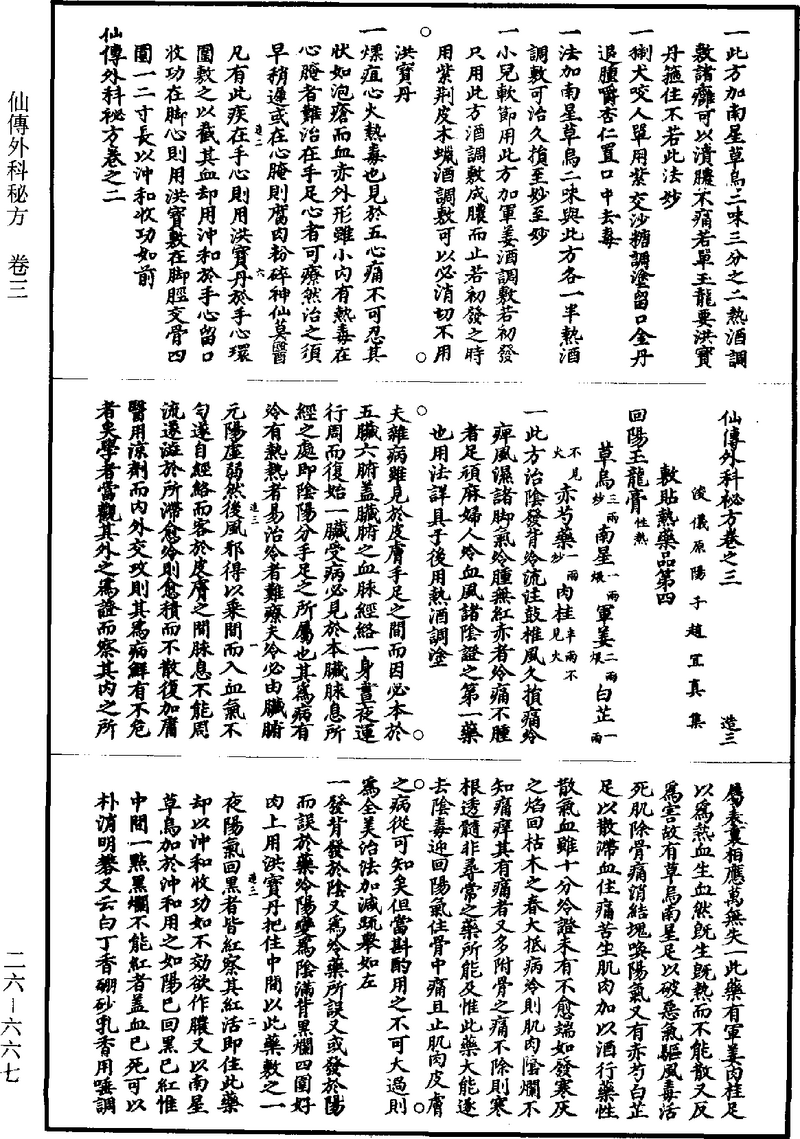 仙傳外科秘方 卷三
二六—六六七
一此方加南星草烏二味三分之二熱酒調
敷諸癰可以潰膿不痛若單玉龍要洪寶
丹箍住不若此法妙
一猘犬咬人單用紫交沙糖調塗留口金丹
退腫嚼杏仁置口中去毒
一法加南星草烏二味與此方各一半熱酒
調敷可治久損至妙至妙
一小兒軟節用此方加軍姜酒調敷若初發
只用此方酒調敷成膿而止若初發之時
用紫荆皮木蠟酒調敷可以必消切不用
洪寶丹
一瘭疽心火熱毒也見於五心痛不可忍其
狀如泡瘡而血赤外形雖小内有熱毒在
心腌者難治在手足心者可療然治之須
早稍遲或在心腌則腐肉粉碎神仙莫醫
凡有此疾在手心則用洪寶丹於手心環
圍敷之以截其血却用沖和於手心留口
收功在脚心則用洪寶敷在脚脛交骨四
圍一二寸長以沖和收功如前
仙傳外科秘方卷之二
仙傳外科秘方卷之三 造三
浚儀原陽子趙宜真集
敷貼熱藥品第四
回陽玉龍膏性熱
草烏三兩炒南星一兩煨軍姜二兩煨白芷一兩
不見火赤芍藥一兩炒肉桂半兩不見火
一此方治陰發背冷流注鼓椎風久損痛冷
痺風濕諸脚氣冷腫無紅赤者冷痛不腫
者足頑麻婦人冷血風諸陰證之第一藥
也用法詳具于後用熱酒調塗
夫雜病雖見於皮膚手足之間而因必本於
五臟六腑蓋臟腑之血脉經絡一身晝夜運
行周而復始一臟受病必見於本臟脉息所
經之處即陰陽分手足之所屬也其爲病有
冷有熱熱者易治冷者難療夫冷必由臟腑
元陽虛弱然後風邪得以乘間而入血氣不
勻遂自經絡而客於皮膚之間脉息不能周
流遂滋於所滯愈冷則愈積而不散復加庸
醫用涼劑而内外交攻則其爲病鮮有不危
者矣學者當觀其外之爲證而察其内之所
屬表裏相應萬無失一此藥有軍姜肉桂足
以爲熱血生血然既生既熱而不能散又反
爲害故有草烏南星足以破惡氣驅風毒活
死肌除骨痛消結塊喚陽氣又有赤芍白芷
足以散滯血住痛苦生肌肉加以酒行藥性
散氣血雖十分冷證未有不愈端如發寒灰
之焰回枯木之春大抵病冷則肌肉陰爛不
知痛痺其有痛者又多附骨之痛不除則寒
根透髓非尋常之藥所能及惟此藥大能逐
去陰毒迎回陽氣住骨中痛且止肌肉皮膚
之病從可知矣但當斟酌用之不可大過則
爲全美治法加減疏舉如左
一發背發於陰又爲冷藥所誤又或發於陽
而誤於藥冷陽變爲陰滿背黑爛四圍好
肉上用洪寶丹把住中間以此藥敷之一
夜陽氣回黑者皆紅察其紅活即住此藥
却以沖和收功如不効欲作膿又以南星
草烏加於沖和用之如陽已回黑已紅惟
中間一點黑爛不能紅者蓋血已死可以
朴消明礬又云白丁香硼砂乳香用唾調